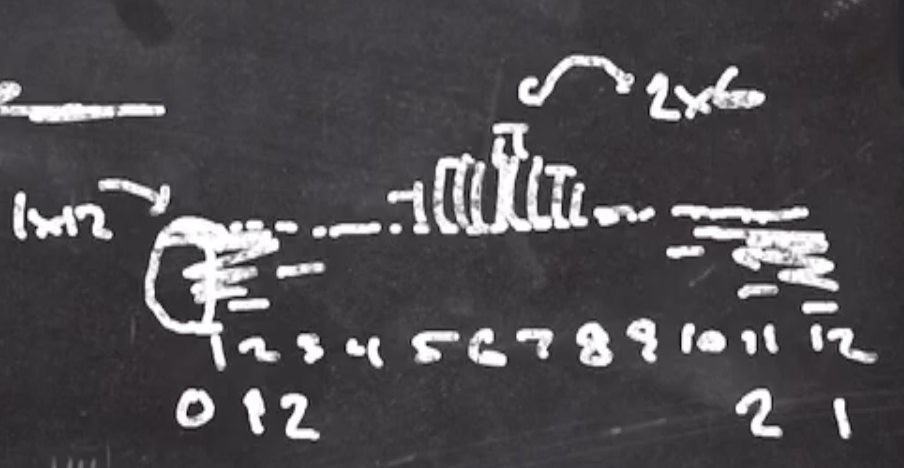 2x6
1x12
1 2 3 4 5 6 7 8 9 10 11 12
0 1 2 2 1